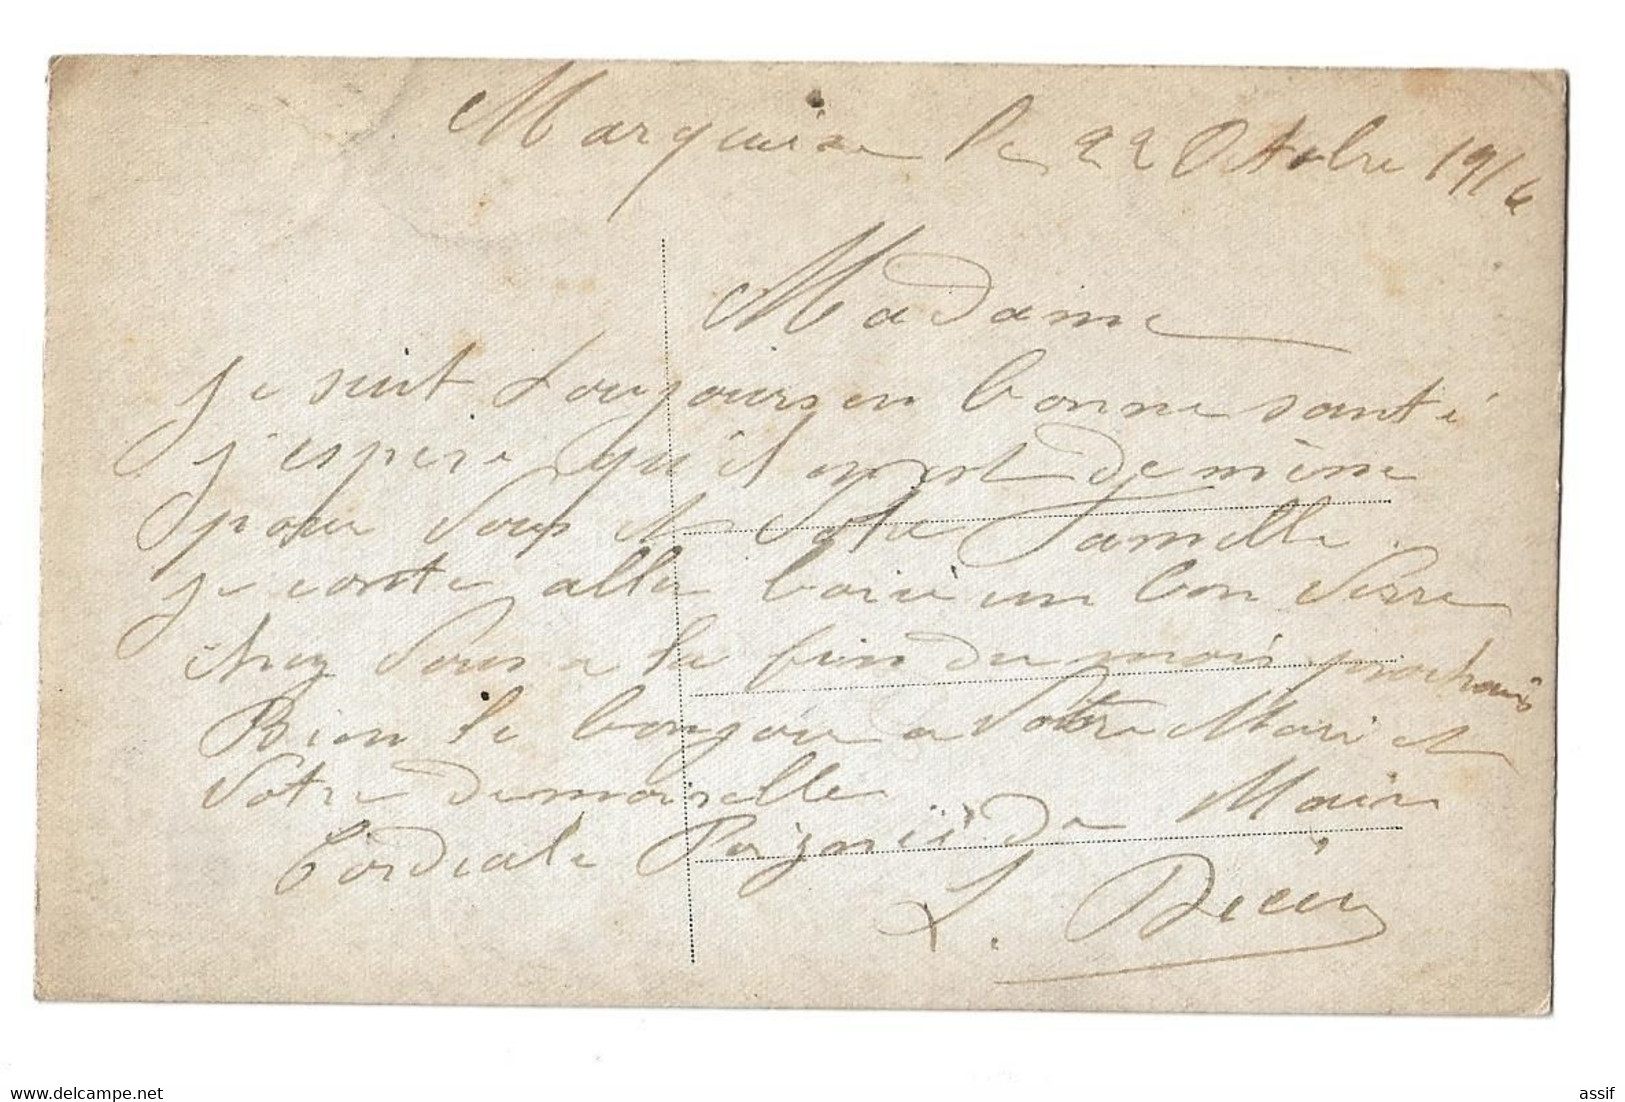 Marquise le 22 Octobre 1916
Madame
Je suit toujours en bonne santé
j'espère qu'il en est de même
pour vous et votre famille.
je conte aller boire un bon verre
chez vous a la fin du mois prochain
Bien le bonjour a votre Mari et
votre demoiselle
Cordiale Poignée de Main
L.
assif
www.delcampe.net